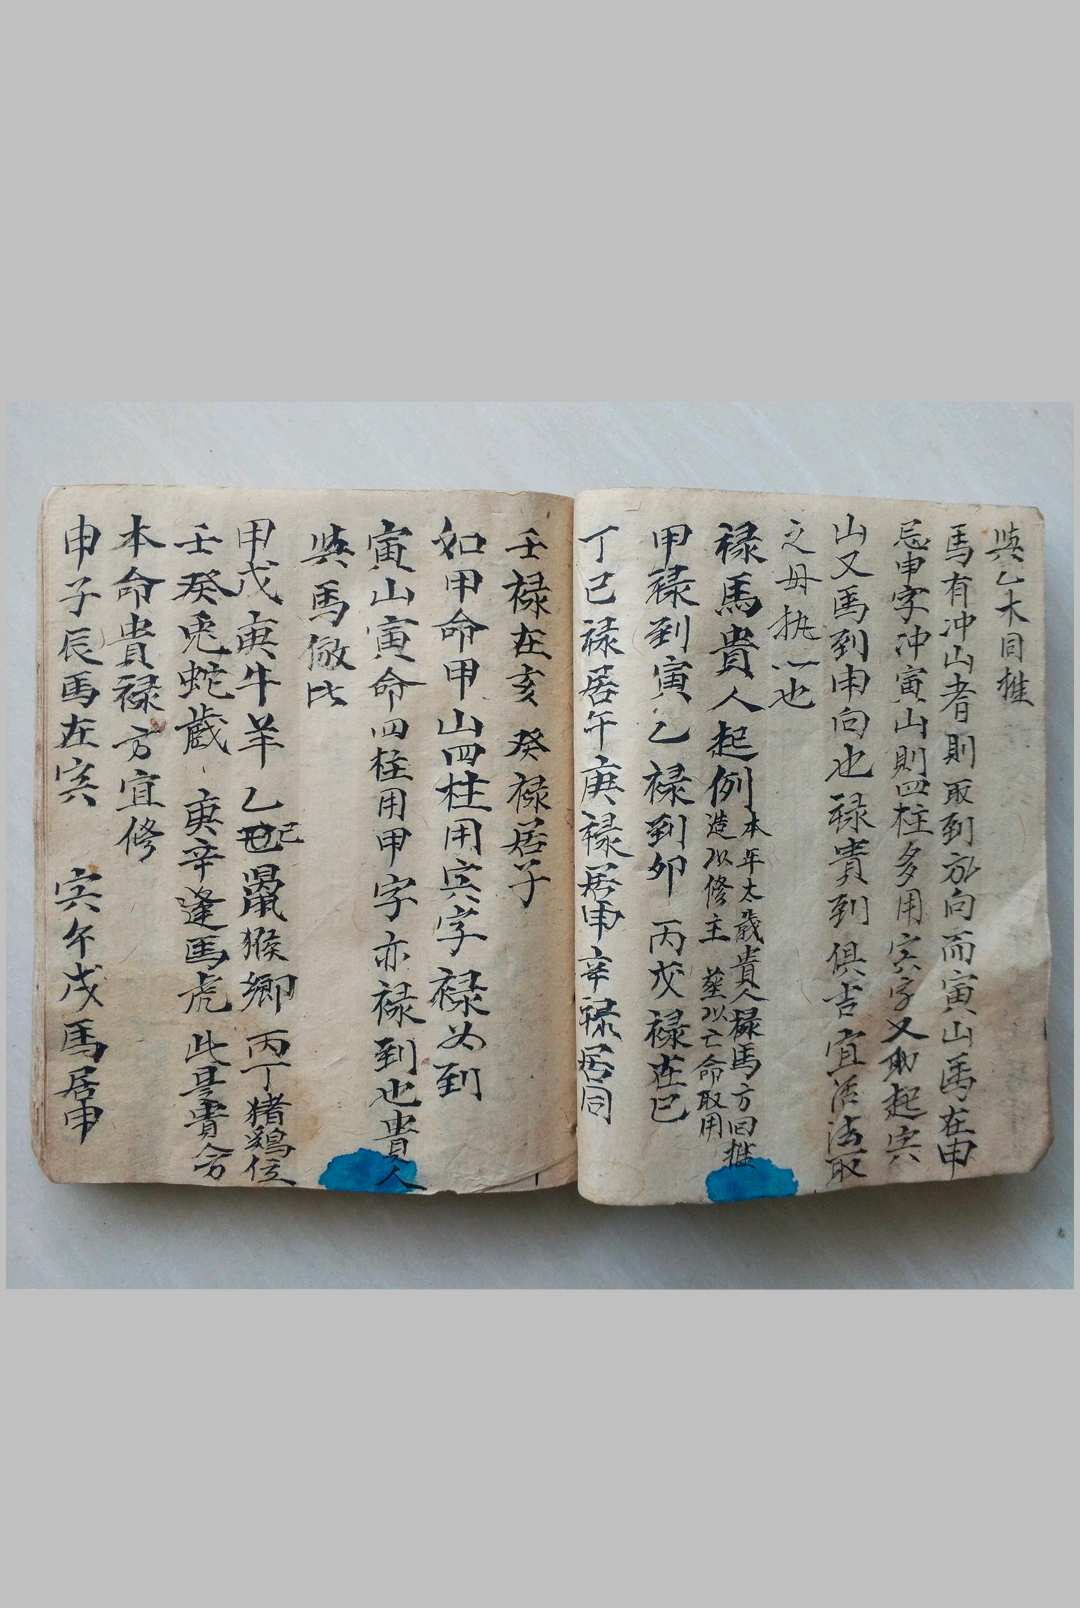 與乙木同推
馬有冲山者則取到方向而寅山馬在申
忌申字冲寅山則四柱多用宾字又取起宾
山又馬到申向也禄貴到俱吉宜活法取
之毋执一也
禄馬貴人起例本年太歲貴人禄馬方同推
造以修主葬以亡命取用
甲禄到寅乙禄到卯丙戊禄在巳
丁己禄居午庚禄居申辛禄居同
壬禄在亥癸禄居子
如甲命甲山四柱用宾字禄必到
寅山寅命四柱用甲字亦禄到也貴人
與馬倣比
甲戊庚牛羊乙己鼠猴卿丙丁猪鷄位
壬癸兎蛇藏庚辛逢馬虎此是貴人方
本命貴禄方宜修
申子辰馬在宾宾午戌馬居申